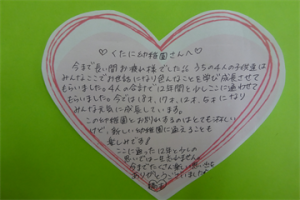 ♡くたに幼稚園さんへ♡
今まで長い間お疲れ様でした。うちの4人の子供達は
みんなここでお世話になり色んなことを学び成長させて
もらいました。4人の合計で12年間と少しここに通わせて
もらいました。今では18才、17才、12才、なり
みんな元気に成長しています。
この幼稚園とお別れするのはとてもさみしい
けど、新しい幼稚園に会えることも
楽しみです!
ここに通った12年と少しの
思い出は一生忘れません。
今までたくさん楽しい思い出を
ありがとうございました。